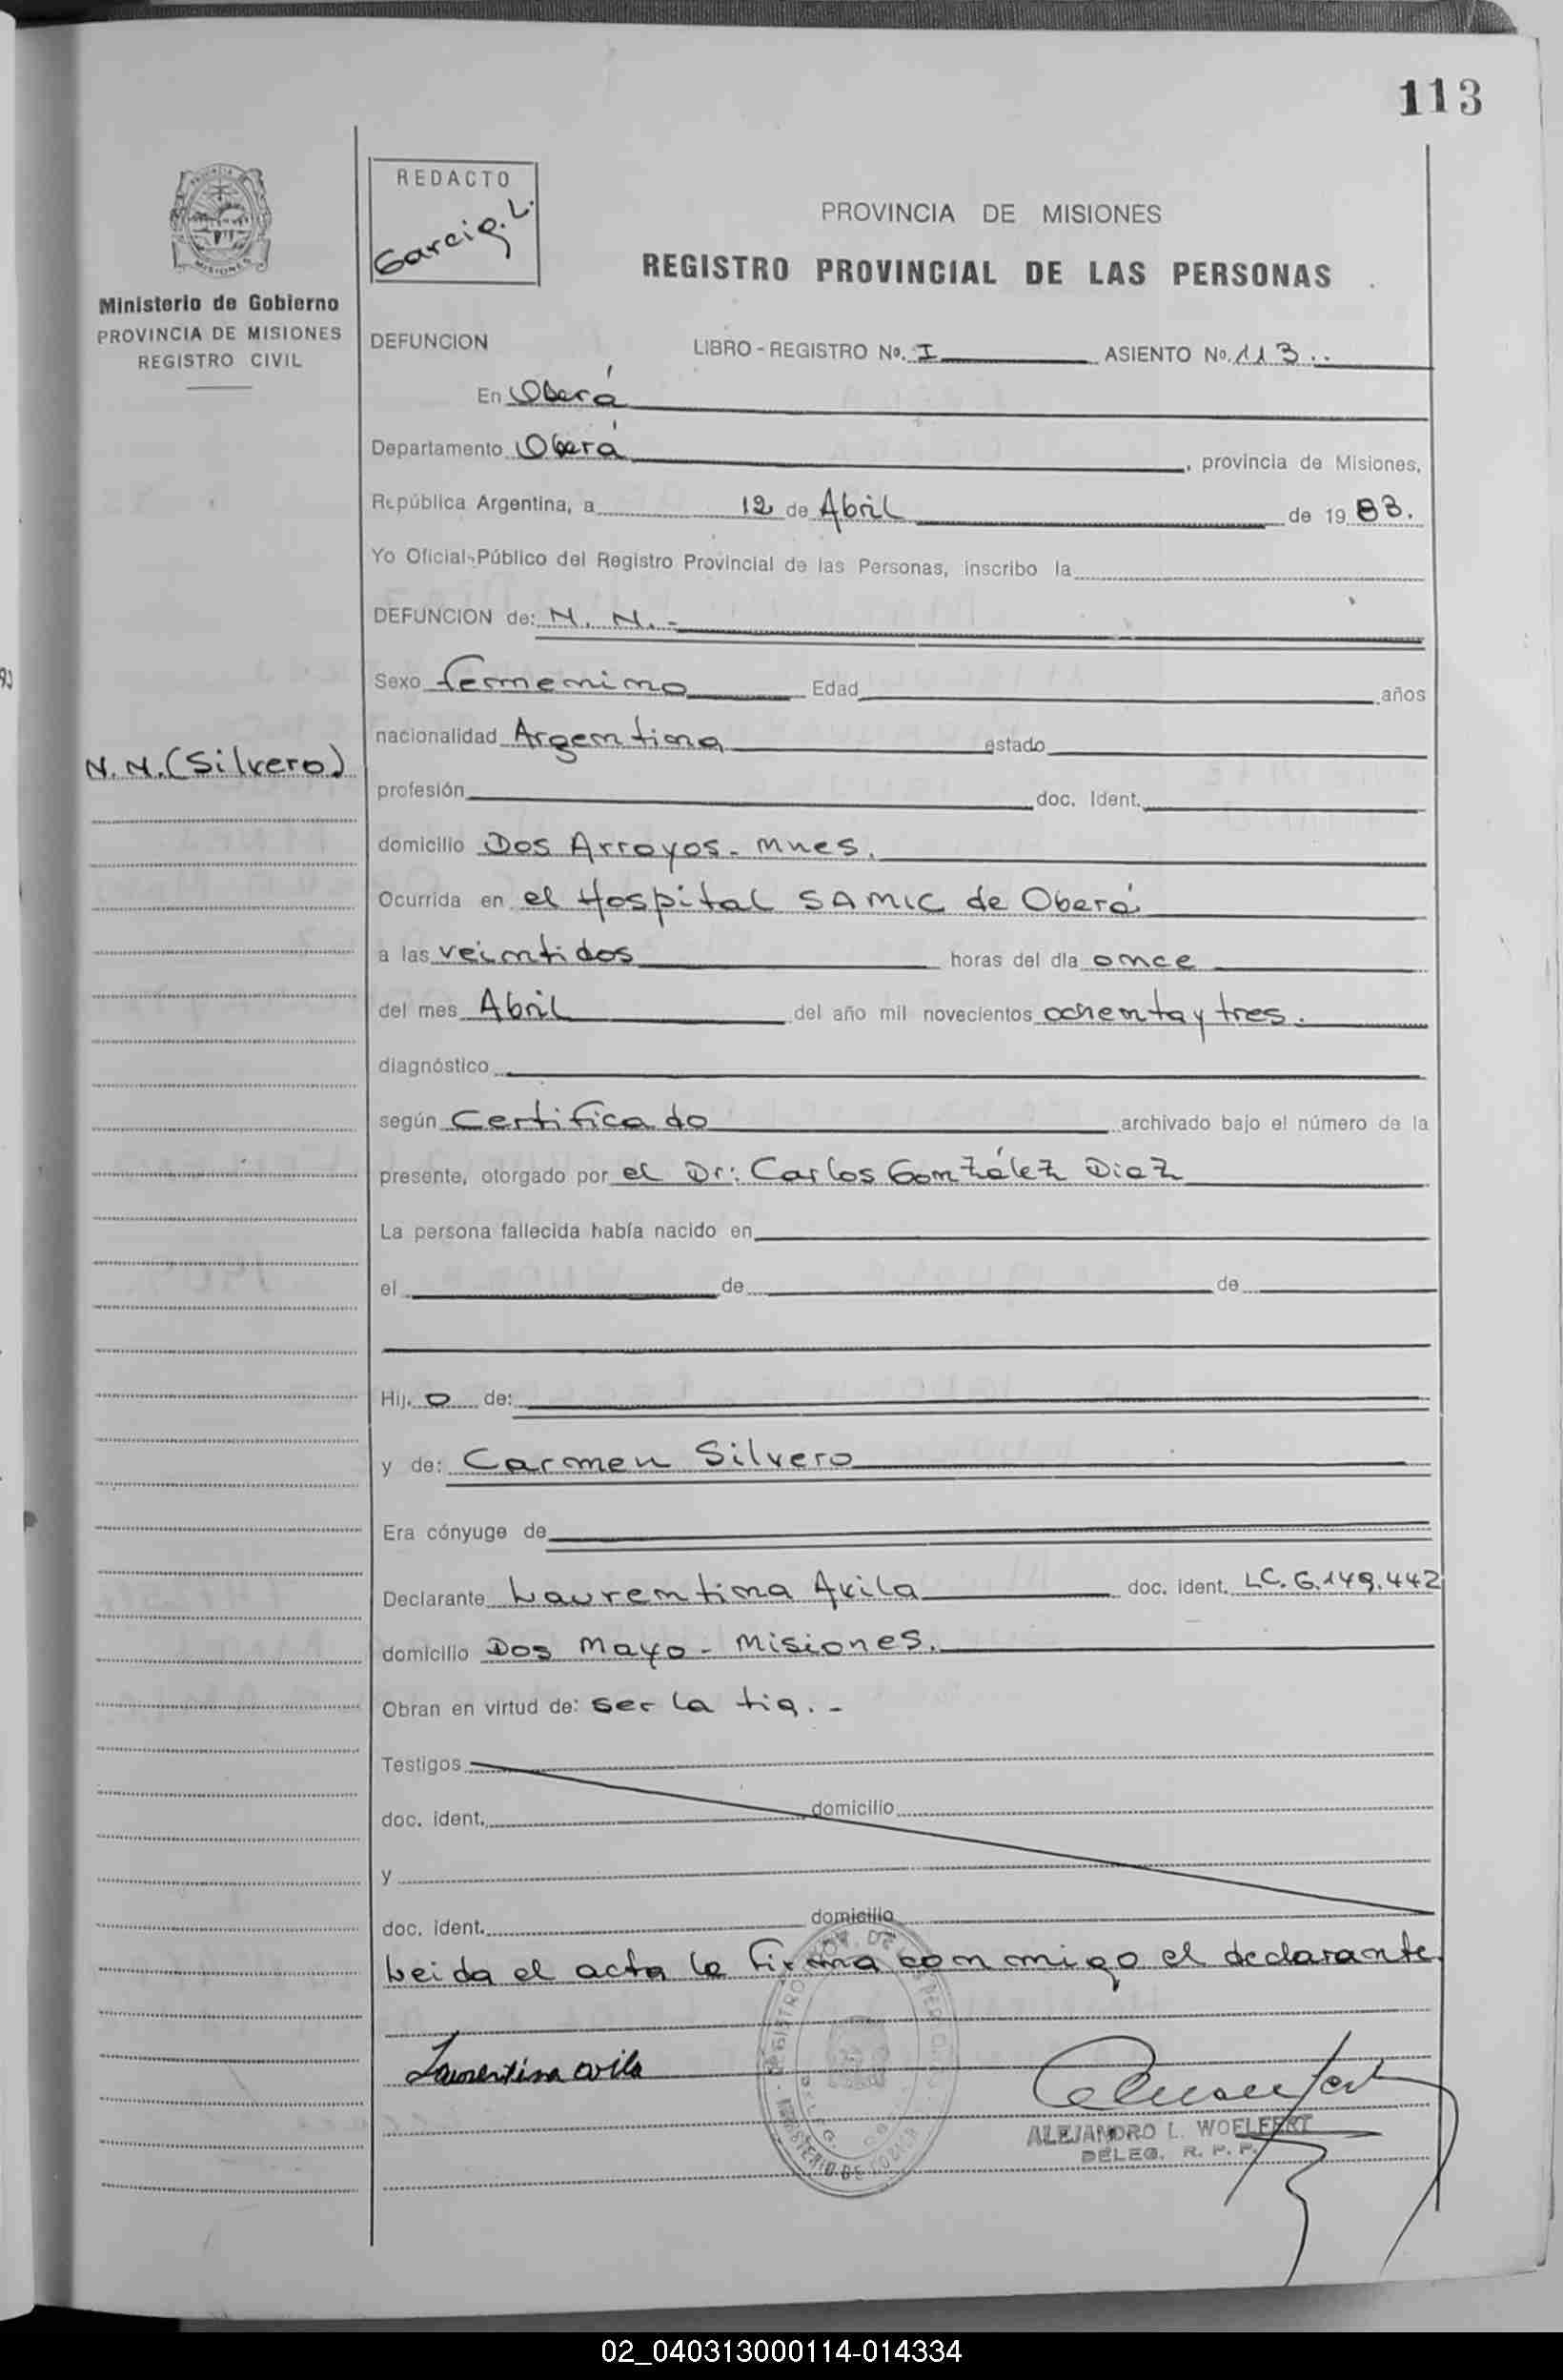 113
REDACTO
Garcia. L.
PROVINCIA DE MISIONES
REGISTRO PROVINCIAL DE LAS PERSONAS
MISIONES
Ministerio de Gobierno
PROVINCIA DE MISIONES
REGISTRO CIVIL
DEFUNCION LIBRO - REGISTRO No. I ASIENTO No. 113..
En Oberá
Departamento Oberá, provincia de Misiones,
República Argentina, a 12 de Abril de 1983.
Yo Oficial Público del Registro Provincial de las Personas, inscribo la
DEFUNCION de: N. N. -
Sexo femenino Edad años
nacionalidad Argentina estado
N. N. (Silvero)
profesión doc. Ident.
domicilio Dos Arroyos - Mnes.
Ocurrida en el Hospital SAMIC de Oberá
a las veintidos horas del día once
del mes Abril del año mil novecientos ochenta y tres.
diagnóstico
según Certificado archivado bajo el número de la
presente, otorgado por el Dr: Carlos González Diaz
La persona fallecida había nacido en
el de de
Hij. o de:
y de: Carmen Silvero
Era cónyuge de
Declarante Laurentina Avila doc. ident. LC. 6.149.442
domicilio Dos Mayo - Misiones.
Obran en virtud de: ser la tia. -
Testigos
doc. ident. domicilio
y
doc. ident. domicilio
Leida el acta la firma conmigo el declarante.
Laurentina avila
ALEJANDRO L. WOELFERT
DELEG. R. P. P.
02_040313000114-014334